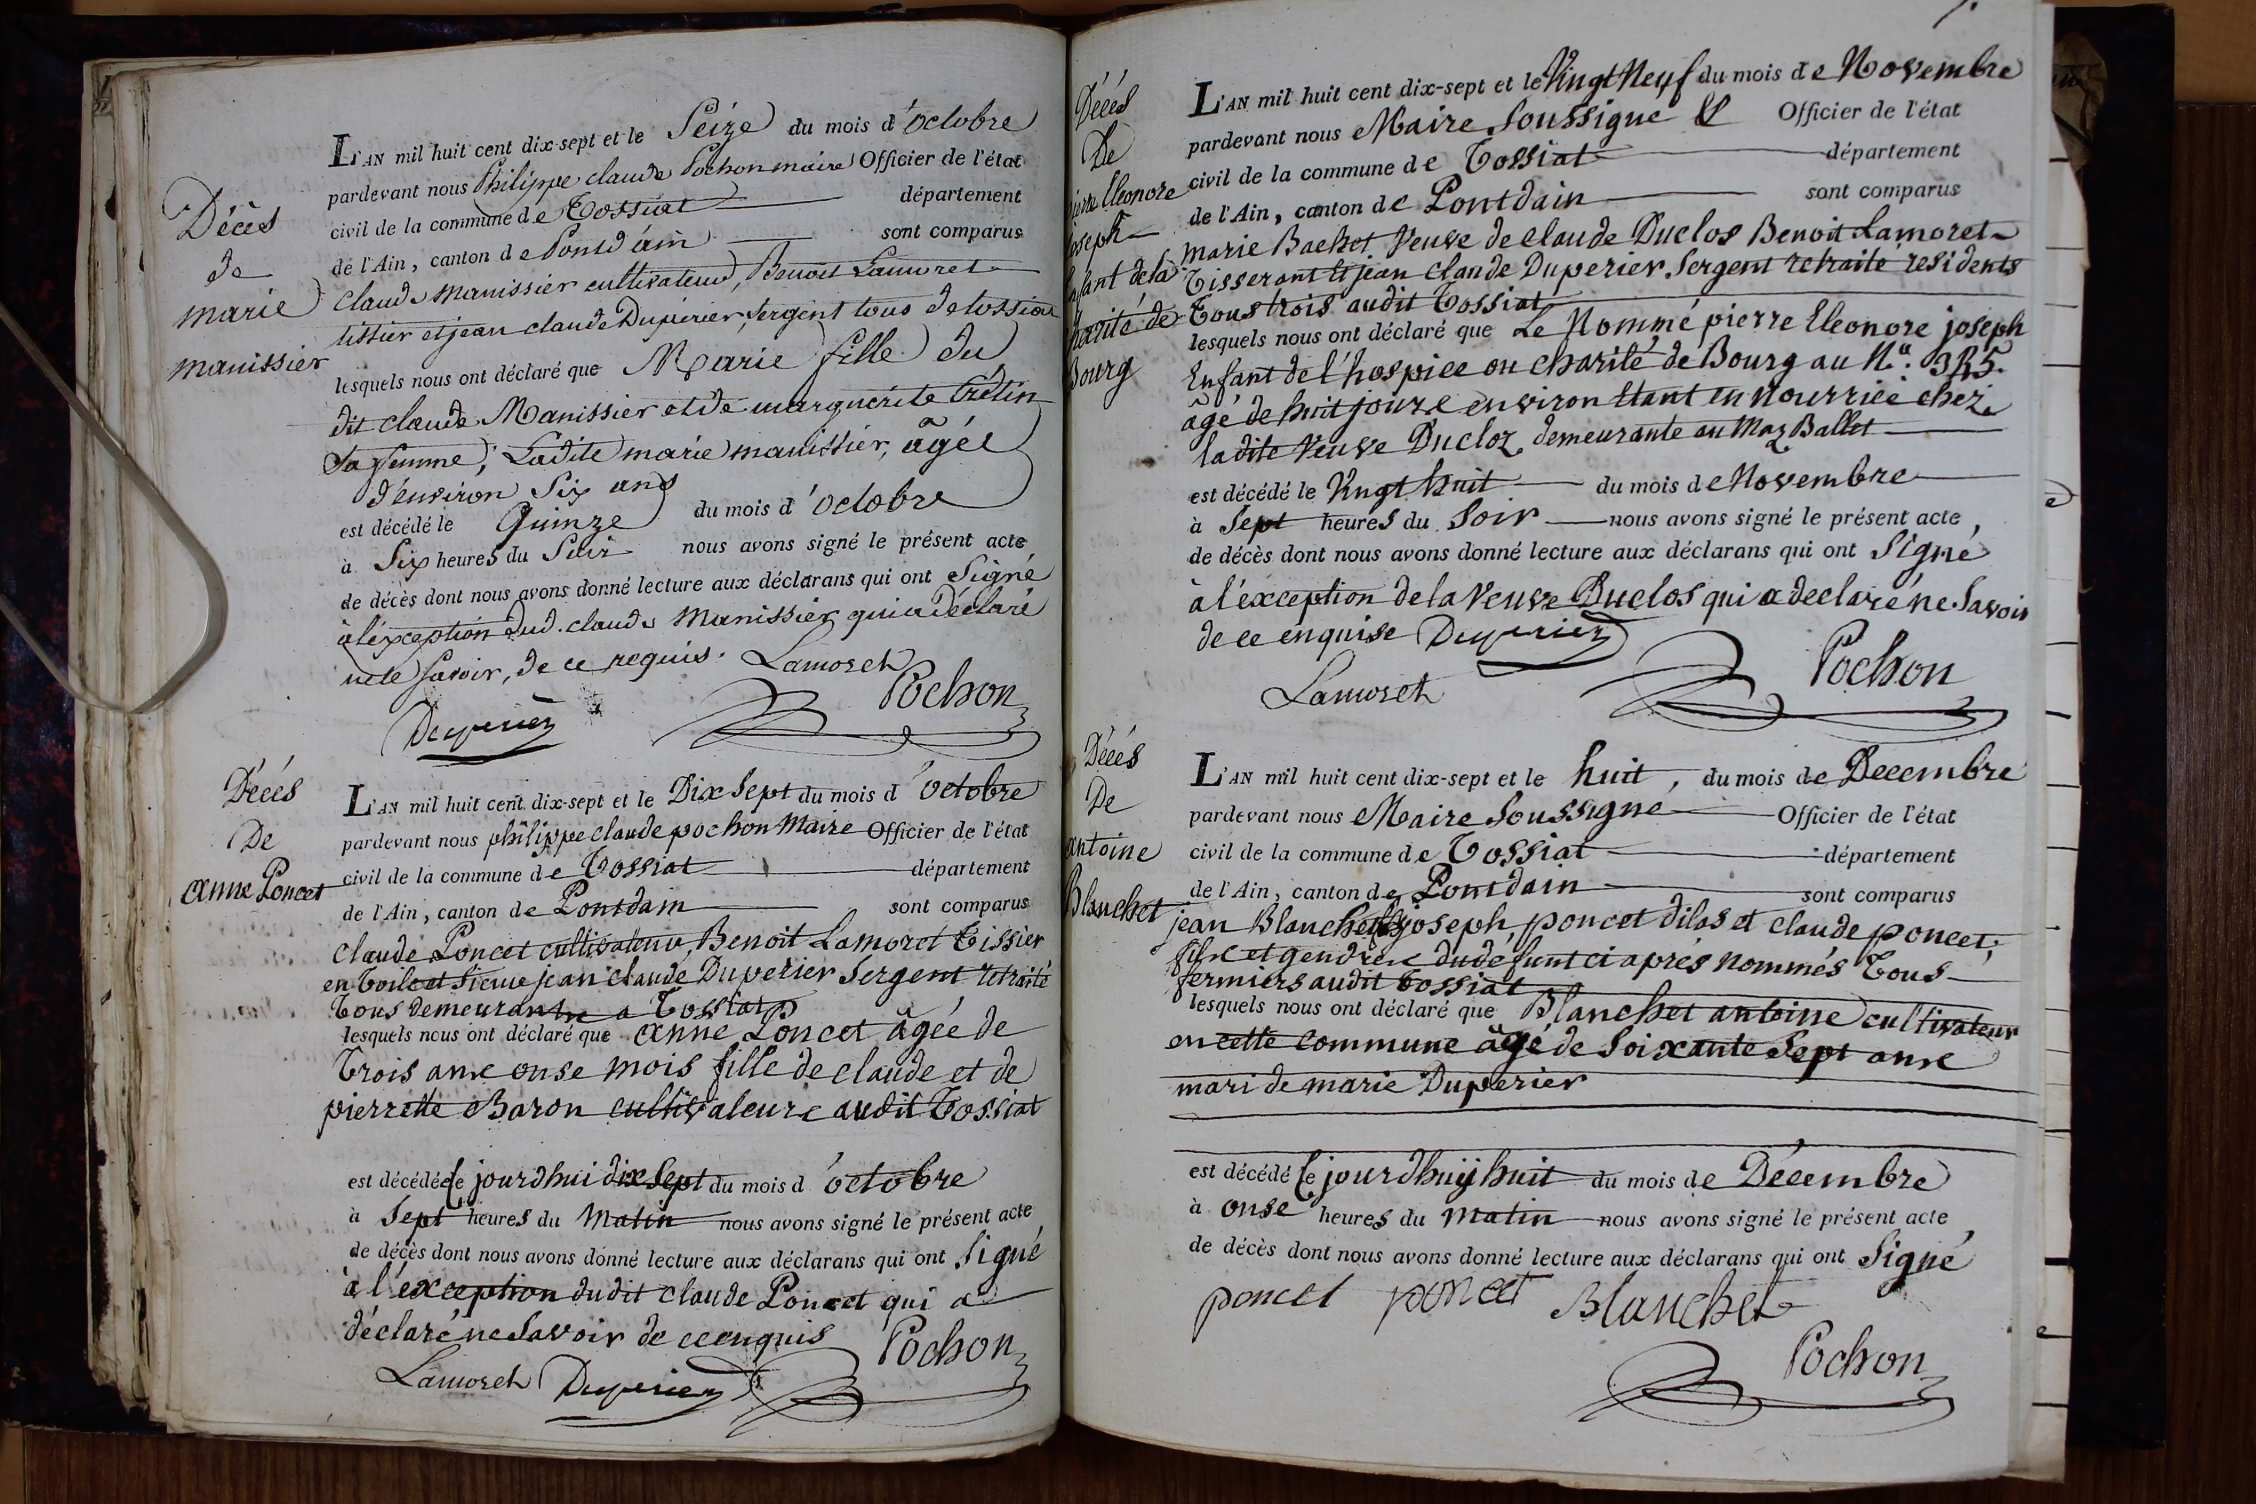 Décès
de
marie
manissier
L'AN mil huit cent dix-sept et le Seize du mois d'octobre
pardevant nous Philippe claude Pochon maire Officier de l'état
civil de la commune de Tossiat département
de l'Ain, canton de Pontd'ain sont comparus
claude manissier cultivateur, Benoit Lamoret
tissier et jean claude Duperier, sergent tous de tossiat
lesquels nous ont déclaré que Marie fille du
dit claude Manissier et de marguerite Crétin
sa femme; Ladite marie manissier, âgée
d'environ Six ans
est décédé le Quinze du mois d'octobre
à Six heures du Soir nous avons signé le présent acte
de décès dont nous avons donné lecture aux déclarans qui ont Signé
à l'éxception dud. claude Manissier qui a déclaré
ne le savoir, de ce requis. Lamoret
Pochon
Duperier
Décés
De
anne Poncet
L'AN mil huit cent dix-sept et le Dix Sept du mois d'octobre
pardevant nous philippe claude pochon Maire Officier de l'état
civil de la commune de Tossiat département
de l'Ain, canton de Pontdain sont comparus
claude Poncet cultivateur, Benoit Lamoret Tissier
en toile et Sieur jean claude Duperier Sergent retraité
Tous demeurants a Tossiat
lesquels nous ont déclaré que anne Poncet âgée de
Trois ans onse mois fille de claude et de
pierrette Baron cultivateurs audit Tossiat
est décédée le jourdhui dix Sept du mois d'octobre
à Sept heures du Matin nous avons signé le présent acte
de décès dont nous avons donné lecture aux déclarans qui ont Signé
à l'exception dudit claude Poncet qui a
déclaré ne Savoir de ce enquis Pochon
Lamoret Duperier
Décés
De
pierre Eleonore
joseph
enfant de la
charité de
Bourg
L'AN mil huit cent dix-sept et le Vingt Neuf du mois de Novembre
pardevant nous Maire Soussigne Officier de l'état
civil de la commune de Tossiat département
de l'Ain, canton de Pontdain sont comparus
marie Bachet Veuve de claude Duclos Benoit Lamoret
Tisserant et jean claude Duperier Sergent retraité residents
Tous trois audit Tossiat
lesquels nous ont déclaré que Le Nommé pierre Eleonore joseph
Enfant de l'hospice ou charité de Bourg au N.º
agé de huit jours environ Etant en Nourrice chez
ladite Veuve Ducloz demeurante au Maz Ballet
est décédé le Vingt huit du mois de Novembre
à Sept heures du Soir nous avons signé le présent acte,
de décès dont nous avons donné lecture aux déclarans qui ont Signé
à l'éxception de la Veuve Duclos qui a declaré ne Savoir
de ce enquise Duperier
Lamoret
Pochon
Décés
De
antoine
Blanchet
L'AN mil huit cent dix-sept et le huit, du mois de Decembre
pardevant nous Maire Soussigne Officier de l'état
civil de la commune de Tossiat département
de l'Ain, canton de Pontdain sont comparus
jean Blanchet joseph poncet dilas et claude poncet;
fils et gendres du défunt ci aprés nommés Tous
fermiers audit Tossiat
lesquels nous ont déclaré que Blanchet antoine cultivateur
en cette commune âgé de Soixante Sept ans
mari de marie Duperier
est décédé le jourdhuy huit du mois de Décembre
à onse heures du matin nous avons signé le présent acte
de décès dont nous avons donné lecture aux déclarans qui ont Signé
poncet poncet Blanchet
Pochon